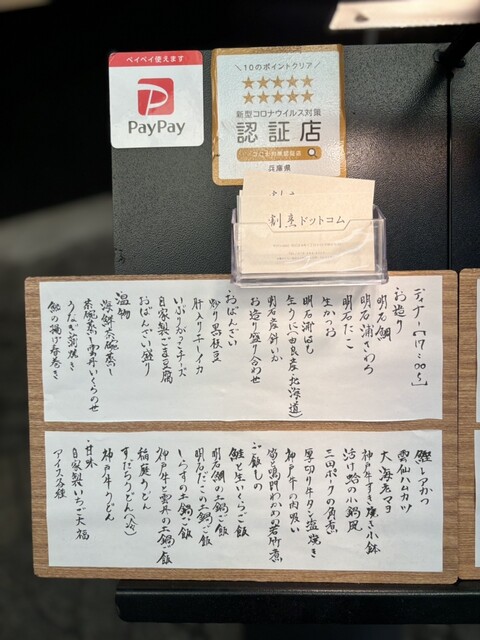 ペイペイ使えます
PayPay
＼10のポイントクリア／
★★★★★
★★★★★
新型コロナウイルス対策
認証店
兵庫県
割烹ドットコム
ディナー【17:00〜】
お造り
明石鯛
明石浦さわら
明石たこ
生かつお
明石浦はも
生うに(由良産、北海道)
明石産針いか
お造り盛り合わせ
おばんざい
炒り黒枝豆
肝入りチーイカ
いぶりがっこチーズ
自家製ごま豆腐
おばんざい盛り
温物
海鮮茶碗蒸し
茶碗蒸し雲丹いくらのせ
うなぎ蒲焼き
鮑の揚げ春巻き
鰹レアかつ
雲仙ハムカツ
大海老マヨ
神戸牛すき焼き小鉢
活け蛤の小鍋風
三田ポークの角煮
厚切り牛タン塩焼き
神戸牛の肉吸い
筍と鳴門わかめの若竹煮
ご飯もの
鮭と生いくらご飯
明石鯛の土鍋ご飯
明石だこの土鍋ご飯
しらすの土鍋ご飯
神戸牛と雲丹の土鍋ご飯
稲庭うどん
すだちうどん(冷)
神戸牛うどん
甘味
自家製いちご大福
アイス各種